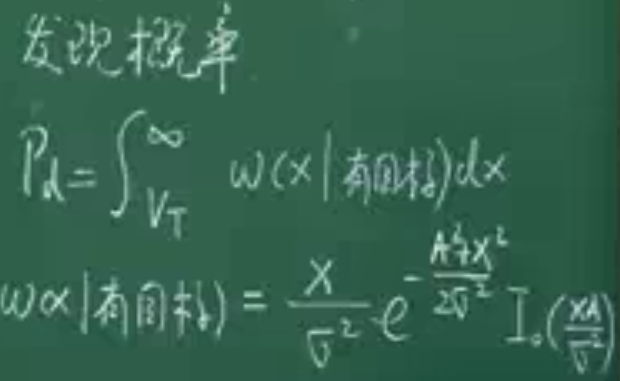 发现概率
P_d = ∫_{V_T}^{∞} ω(x|有目标)dx
ω(x|有目标) = \frac{x}{σ^2} e^{-\frac{A^2+x^2}{2σ^2}} I_0(\frac{xA}{σ^2})